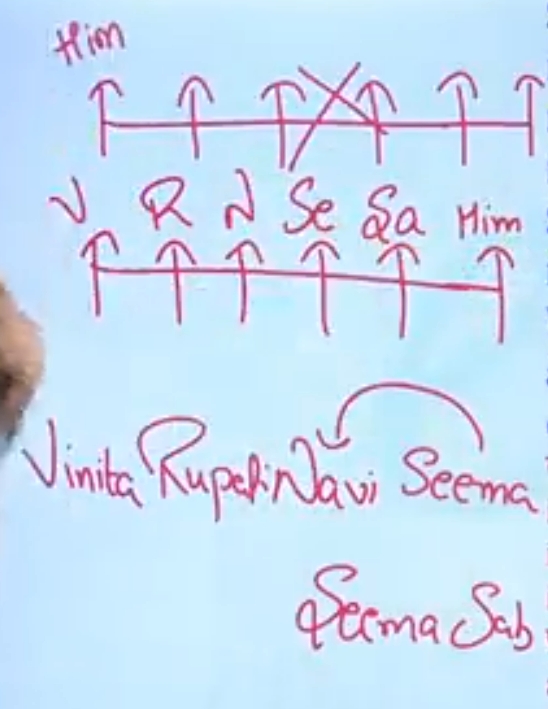 Him
V R N Se Sa Him
Vinita Rupali Navi Seema
Seema Sab